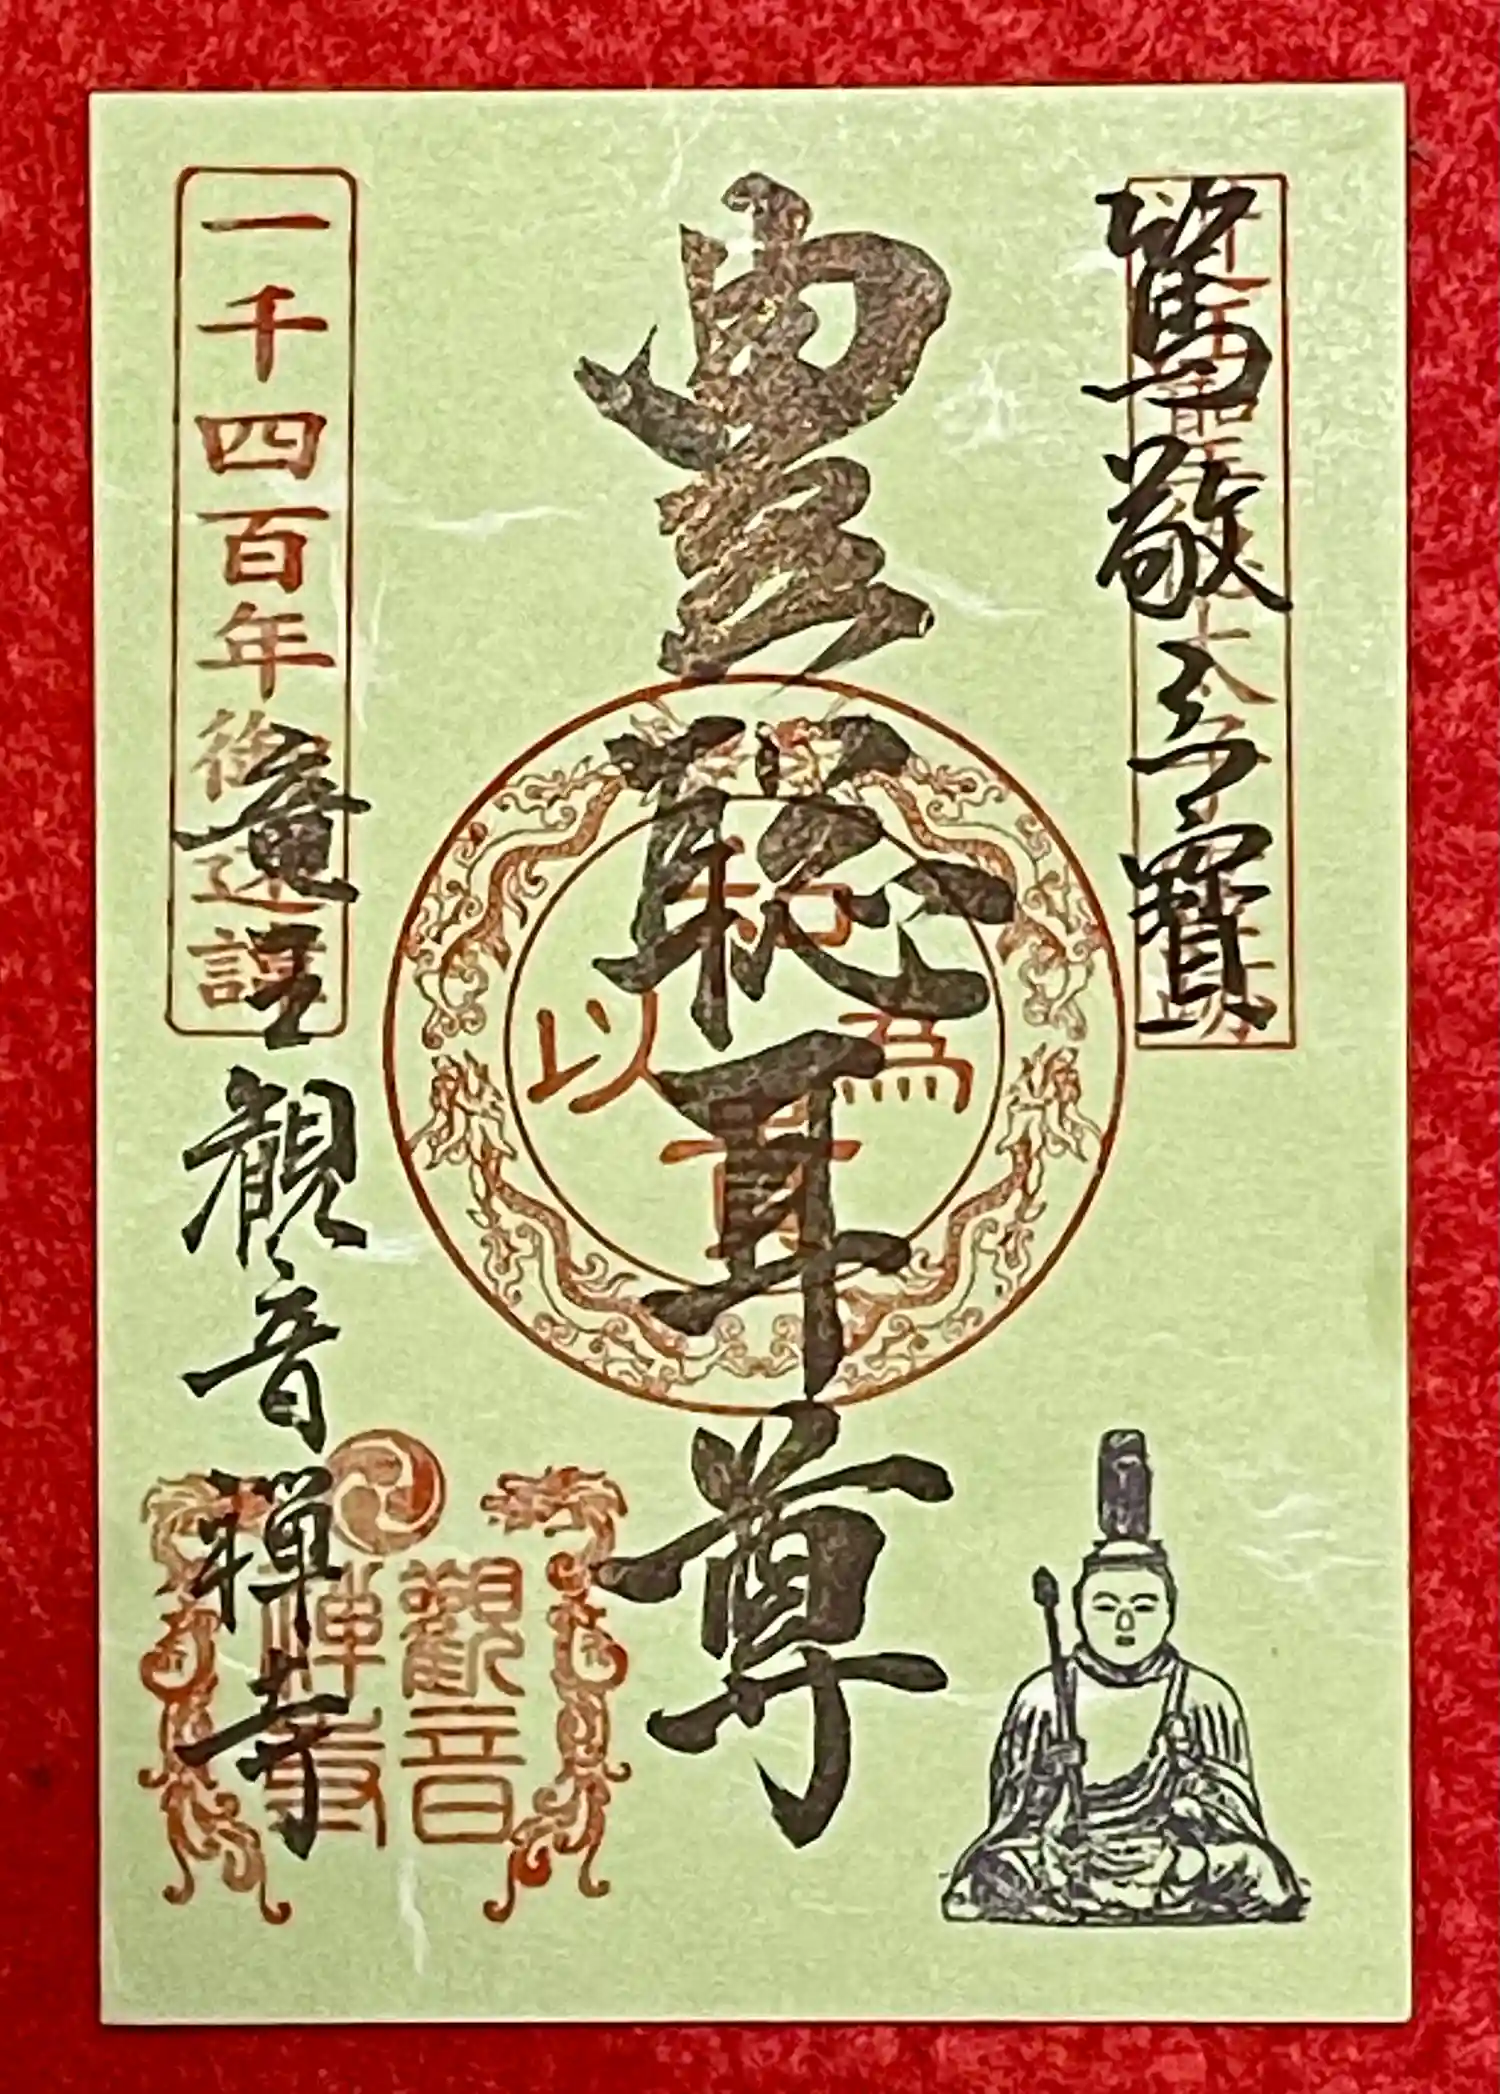 篤敬三寶
豊聡耳尊
以和為貴
一千四百年御遠諱
竜王観音禅寺
觀音
禅寺